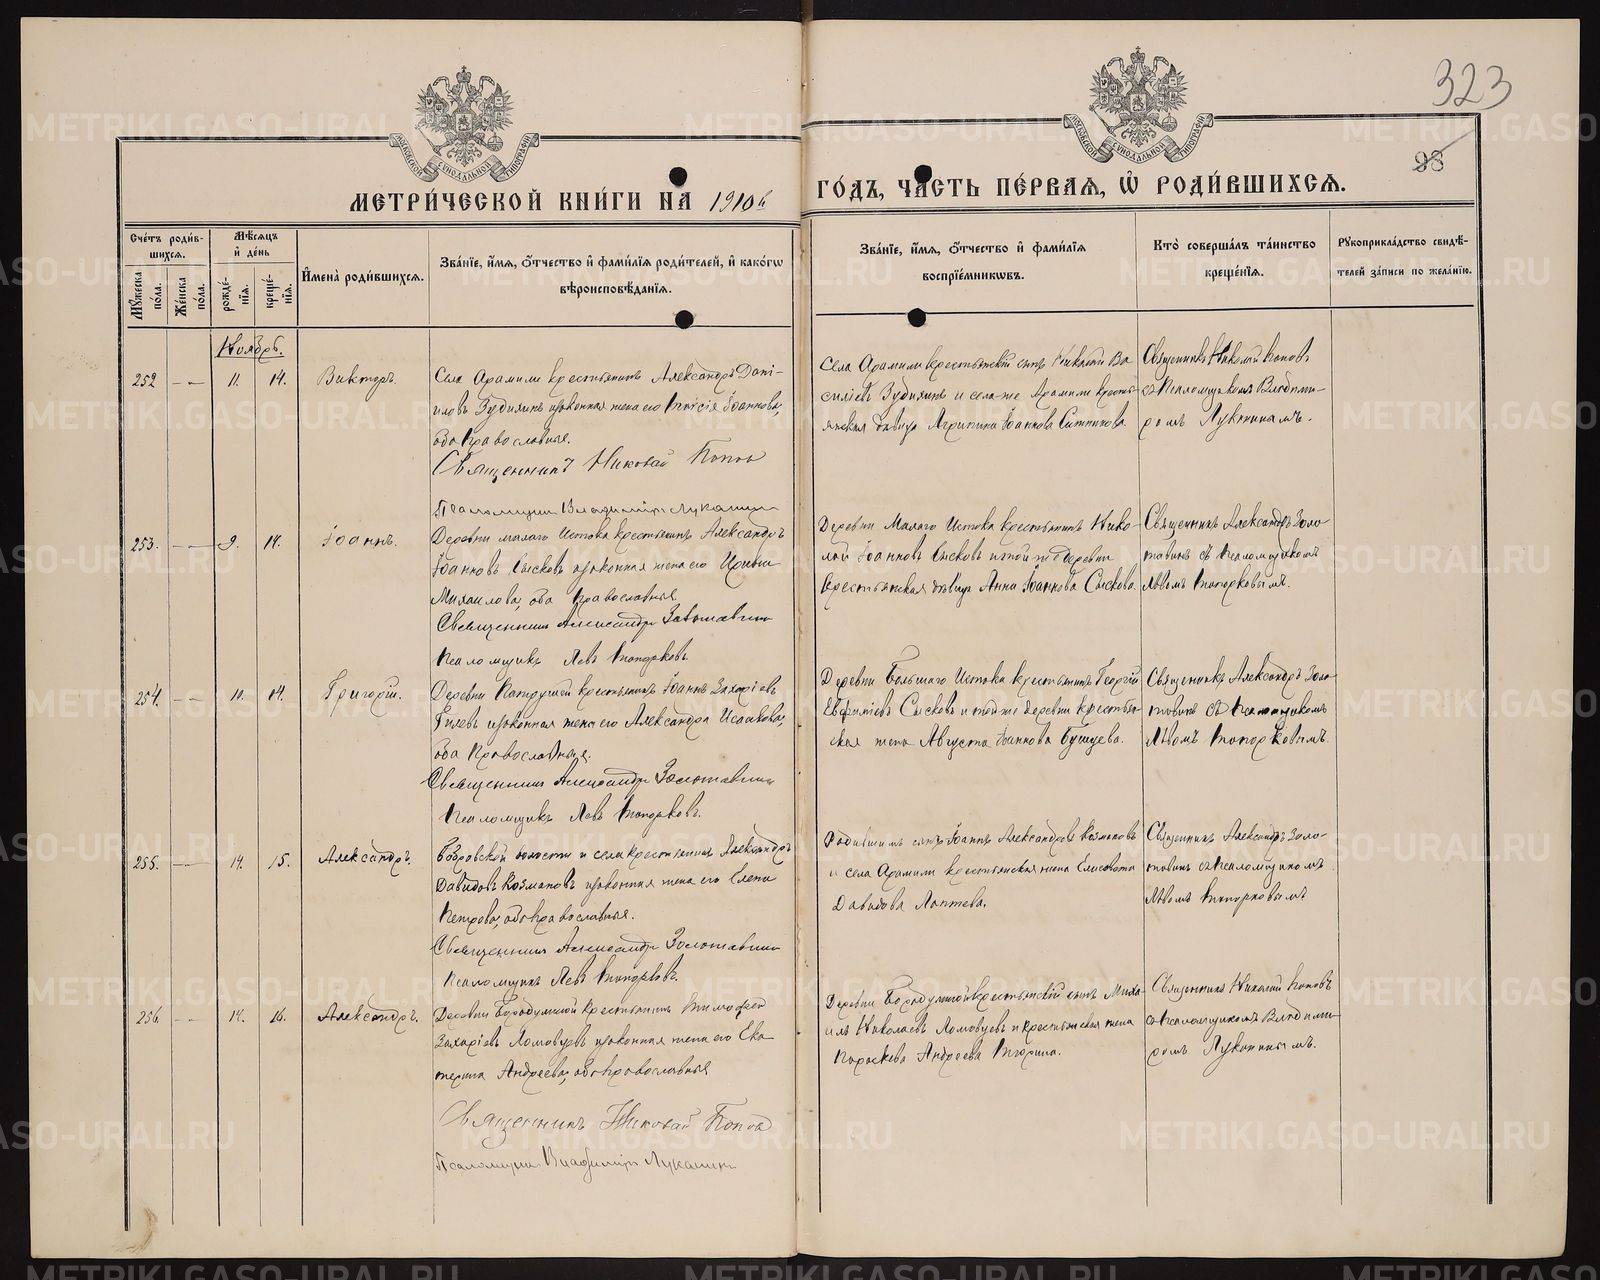 323
98
МОСКОВСКОЙ СѴНОДАЛЬНОЙ ТИПОГРАФІИ
МОСКОВСКОЙ СѴНОДАЛЬНОЙ ТИПОГРАФІИ
МЕТРИ́ЧЕСКОЙ КНИ́ГИ НА 1910й
ГО́ДЪ, ЧА́СТЬ ПЕ́РВАѦ, Ѡ҆ РОДИ́ВШИХСѦ.
Сче́тъ роди́в-
шихсѧ.
Мѣ́сѧцъ
и҆ де́нь
Мꙋ́жеска по́ла.
Же́нска по́ла.
рожде́-
нїѧ.
креще́-
нїѧ.
И҆мена̀ роди́вшихсѧ.
Зва́нїе, и҆́мѧ, ѻ҆́тчество и҆ фами́лїѧ роди́телей, и҆ како́гѡ
вѣроисповѣ́данїѧ.
Зва́нїе, и҆́мѧ, ѻ҆́тчество и҆ фами́лїѧ
воспрїе́мникѡвъ.
Кто̀ соверша́лъ та́инство
креще́нїѧ.
Рꙋкоприкла́дство свидѣ́-
телей за́писи по жела́нїю.
Ноябрь.
252 — — 11. 14. Викторъ.
Села Арамили крестьянинъ Александръ Дані-
иловъ Зудихинъ и законная жена его Таисія Іоаннова,
оба Православные.
Священникъ Николай Попов
Псаломщик Владиміръ Луканин
Села Арамили крестьянскій сынъ Никита Ва-
силіевъ Зудихинъ и села же Арамили кресть-
янская дѣвица Агрипина Іоаннова Ситникова.
Священникъ Николай Поповъ
съ Псаломщикомъ Владими-
ромъ Луканинымъ.
253. — — 9. 14. Іоаннъ.
Деревни Малаго Истока крестьянинъ Александръ
Іоанновъ Сысковъ и законная жена его Ирина
Михаилова, оба Православные.
Священник Александр Золотавин
Псаломщикъ Левъ Топорковъ.
Деревни Малаго Истока крестьянинъ Нико-
лай Іоанновъ Сысковъ и той же деревни
крестьянская дѣвица Анна Іоаннова Сыскова.
Священникъ Александръ Золо-
тавинъ съ Псаломщикомъ
Львомъ Топорковымъ.
254. — — 10. 14. Григорій.
Деревни Патрушей крестьянинъ Іоаннъ Захаріевъ
Гилевъ и законная жена его Александра Исаакова,
оба Православные.
Священник Александр Золотавин
Псаломщикъ Левъ Топорковъ.
Деревни Большаго Истока крестьянинъ Георгій
Евфиміевъ Сысковъ и той же деревни крестьян-
ская жена Августа Іоаннова Бушуева.
Священникъ Александръ Золо-
тавинъ съ Псаломщикомъ
Львомъ Топорковымъ.
255. — — 14. 15. Александръ.
Бобровской волости и села крестьянинъ Александръ
Давидовъ Козмаковъ и законная жена его Елена
Петрова, оба Православные.
Священник Александр Золотавин
Псаломщикъ Левъ Топорковъ.
сынъ Іоаннъ Александровъ Козмаковъ
и села Арамили крестьянская жена Елисавета
Давидова Лаптева.
Священникъ Александръ Золо-
тавинъ съ Псаломщикомъ
Львомъ Топорковымъ
256. — — 14. 16. Александръ.
Деревни Бородулиной крестьянинъ Тимофей
Захаріевъ Ломовцевъ и законная жена его Ека-
терина Андреева, оба Православные
Священникъ Николай Попов
Псаломщик Владиміръ Луканин
Деревни Бородулиной крестьянскій сынъ Миха-
илъ Николаевъ Ломовцевъ и крестьянская жена
Параскева Андреева
Священникъ Николай Поповъ
съ Псаломщикомъ Владими-
ромъ Луканинымъ.
METRIKI.GASO-URAL.RU